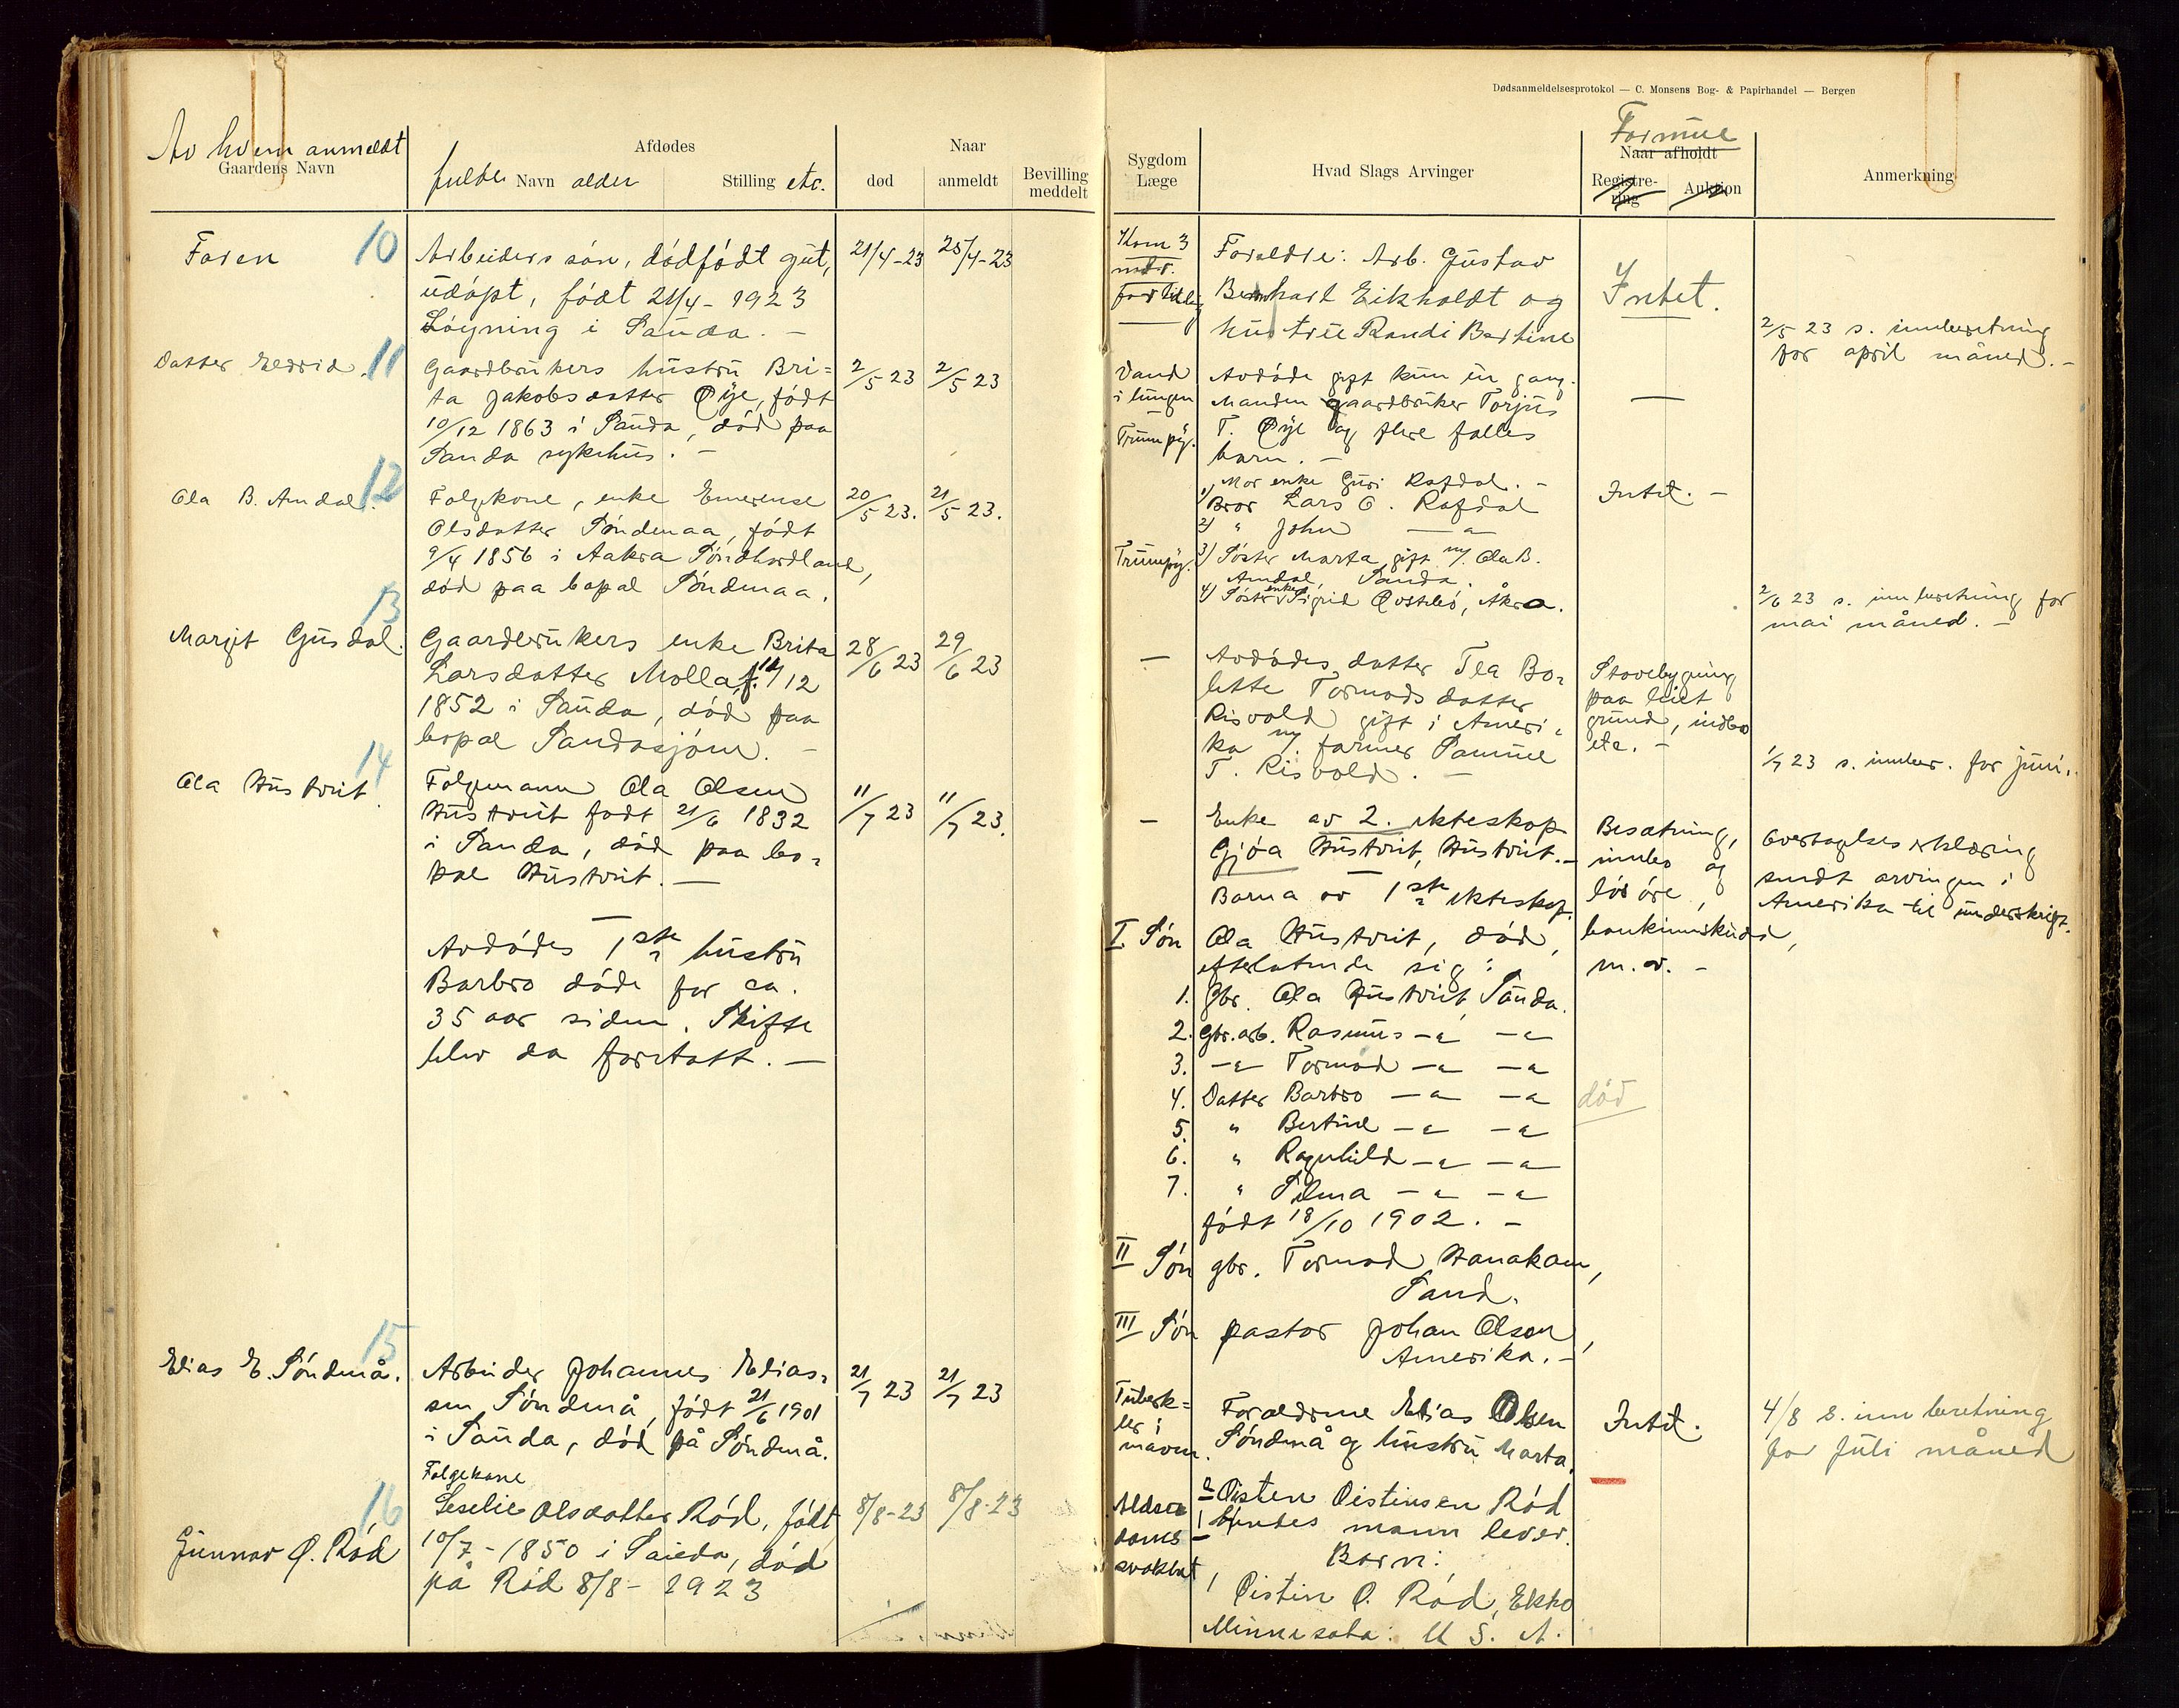 Dødsanmeldelsesprotokol — C. Monsens Bog- & Papirhandel — Bergen
Av hvem anmeldt
Gaardens Navn
Afdødes
fulde Navn alder
Stilling etc.
Naar
død
anmeldt
Bevilling
meddelt
Sygdom
Læge
Hvad Slags Arvinger
Formue
Naar afholdt
Registre-
ring
Auktion
Anmerkning
Faren 10
Arbeiders søn, dødfødt gut,
udøpt, født 21/4 - 1923
Løyning i Sauda. —
21/4-23
25/4-23
Kom 3
mdr.
for tidlig
Foreldre: Arb. Gustav
Bernhard Eikholdt og
hustru Randi Bertine
Intet.
2/5 23 s. innberetning
for april måned. —
Datter Eldrid. 11
Gaardbrukers hustru Bri=
ta Jakobsdatter Øye, født
10/12 1863 i Sauda, død paa
Sauda sykehus. —
2/5 23
2/5 23
Vand
i lungen
—
Trumpy.
Avdøde gift kun en gang.
Manden gaardbruker Torjus
T. Øye og flere fælles
barn. —
—
Ola B. Amdal. 12
Følgekone, enke Emerense
Olsdatter Søndenaa, født
9/4 1856 i Aakra Søndhordland,
død paa bopæl Søndenaa.
20/5 23.
21/5 23.
Trumpy.
Mor enke Guri Rafdal. —
1) Bror Lars O. Rafdal
2) " John — " —
3) Søster Marta, gift m/ Ola B.
Amdal, Sauda.
4) Søster enke Sigrid Østebø, Åkra.
Intet. —
2/6 23 s. innberetning for
mai måned. —
13
Margit Gusdal.
Gaardbrukers enke Brita
Larsdatter Molla f. 14/12
1852 i Sauda, død paa
bopæl Saudasjøen. —
28/6 23
29/6 23
—
Avdødes datter Tea Bo=
lette Tormodsdatter
Risvold gift i Ameri=
ka m/ farmer Samuel
T. Risvold. —
Stovebygning
paa leiet
grund, indbo
etc. —
1/7 23 s. innber. for juni.
14
Ola Hustveit.
Følgemann Ola Olsen
Hustveit født 21/6 1832
i Sauda, død paa bo=
pæl Hustveit. —
—
Avdødes 1ste hustru
Barbro døde for ca.
35 aar siden. Skifte
blev da foretatt. —
11/7 23
11/7 23.
—
Enke av 2. ekteskap
Gjøa Hustveit, Hustveit. —
Barna av 1ste ekteskap.
I Søn Ola Hustveit, død,
efterlatende sig:
1. Gbr. Ola Hustveit, Sauda.
2. Gbr.arb. Rasmus — " — — " —
3. — " — Tormod — " — — " —
4. Datter Barbro — " — — " — død
5. " Bertine — " — — " —
6. " Ragnhild — " — — " —
7. " Selma — " — — " —
født 18/10 1902. —
II Søn gbr. Tormod Hanakam,
Sand.
III Søn pastor Johan Olsen,
Amerika. —
Besætning,
innbo og
løsøre,
bankinnskudd,
m.v. —
Overtagelseserklæring
sendt arvingen i
Amerika til underskrift.
15
Elias E. Søndenå.
Arbeider Johannes Elias=
sen Søndenå, født 21/6 1901
i Sauda, død på Søndenå.
21/7 23
21/7 23
Tuberk=
ler i
maven.
Foreldrene Elias Olsen
Søndenå og hustru Marta.
Intet.
4/8 s. innberetning
for juli måned
16
Gunnar Ø. Rød
Følgekone
Seselie Olsdatter Rød, født
10/7 - 1850 i Sauda, død
på Rød 8/8 - 1923
8/8-23
8/8-23
Alder
doms-
svakhet
Øisten Øistinsen Rød
hendes mann lever.
Barn:
1 Øistin Ø. Rød, Ekho
Minnesota: U. S. A.